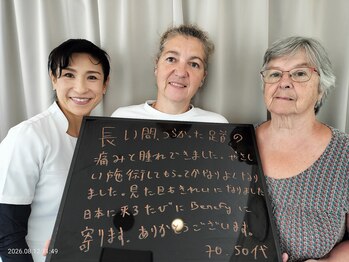 長い間、つらかった足首の
痛みと腫れできました。やさし
い施術してもらってかなりよくなり
ました。見た目もきれいになりました
日本に来るたびにBenefyに
寄ります。ありがとうございます。
70.50代
2026.08.12 14:49